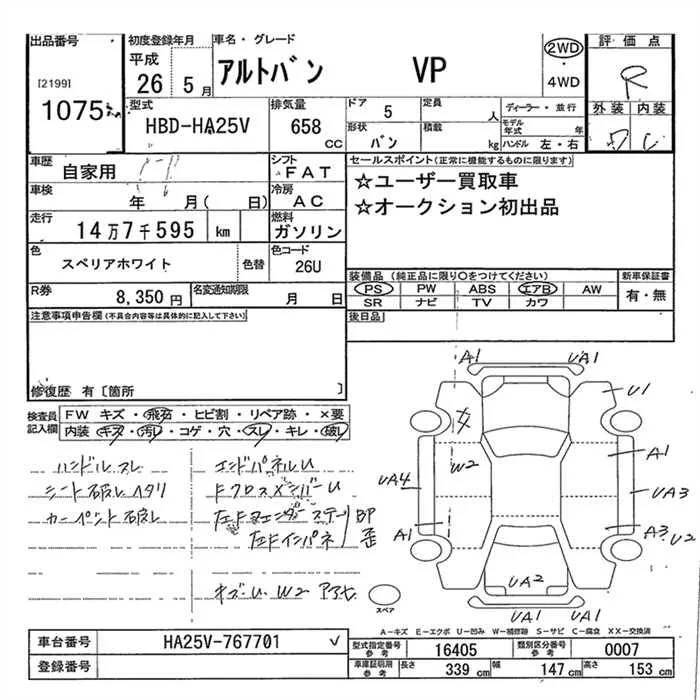 出品番号
[2199]
1075
初度登録年月
平成
26 5月
車名・グレード
アルトバン VP
2WD
・
4WD
評価点
R
外装 内装
型式
HBD-HA25V
排気量
658
CC
ドア 5
形状 バン
定員 人
積載 kg
ディーラー・並行
モデル年式 年
ハンドル 左・右
車歴 自家用
シフト FAT
車検 年 月( 日)
冷房 AC
走行 14万7千595 km
燃料 ガソリン
色 スペリアホワイト 色替
色コード 26U
R券 8,350円
名変通知期限 月 日
セールスポイント(正常に機能するものに限ります)
☆ユーザー買取車
☆オークション初出品
装備品 (純正品に限り○をつけてください)
新車保証書
PS PW ABS エアB AW
有・無
SR ナビ TV カワ
後日品
注意事項申告欄(不具合内容等は具体的に記入して下さい)
修復歴 有〔箇所 〕
検査員記入欄
FW キズ・飛石・ヒビ割・リペア跡・×要
内装・キズ・汚レ・コゲ・穴・スレ・キレ・破レ
ハンドルスレ
シート破レヘタリ
カーペット破レ
エンドパネルU
FクロスメンバーU
左Fインパネ
キズ・U W2 アアセ
A1
UA1
U1
W2
A1
UA4
UA3
A1
A3
U2
UA2
UA1
UA1
スペア
A-キズ E-エクボ U-凹み W-補修跡 S-サビ C-腐食 XX-交換済
車台番号 HA25V-767701
登録番号
型式指定番号 参考 16405
類別区分番号 参考 0007
車庫証明用 参考 長さ 339cm 幅 147cm 高さ 153cm